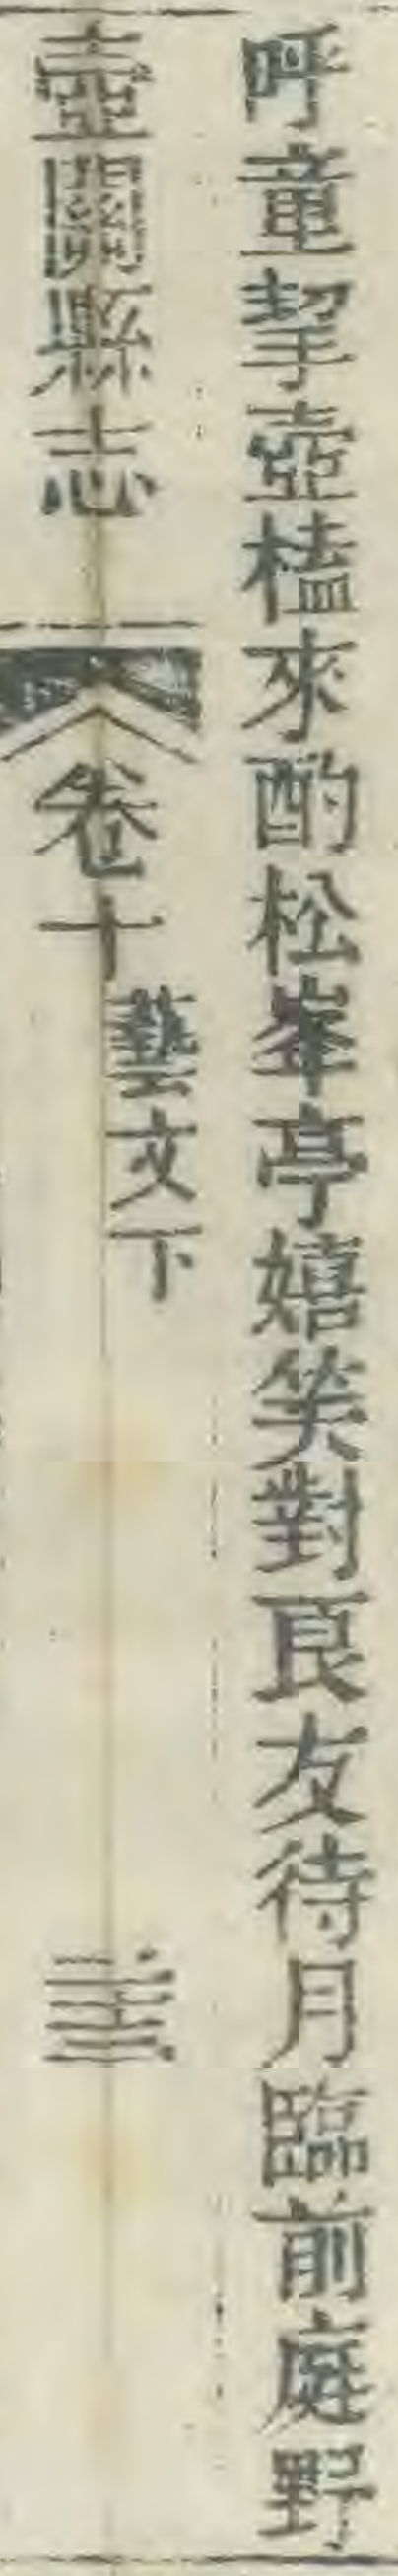 呼童挈壺榼來酌松峯亭嬉笑對良友待月臨前庭野
壺關縣志
卷十
藝文下